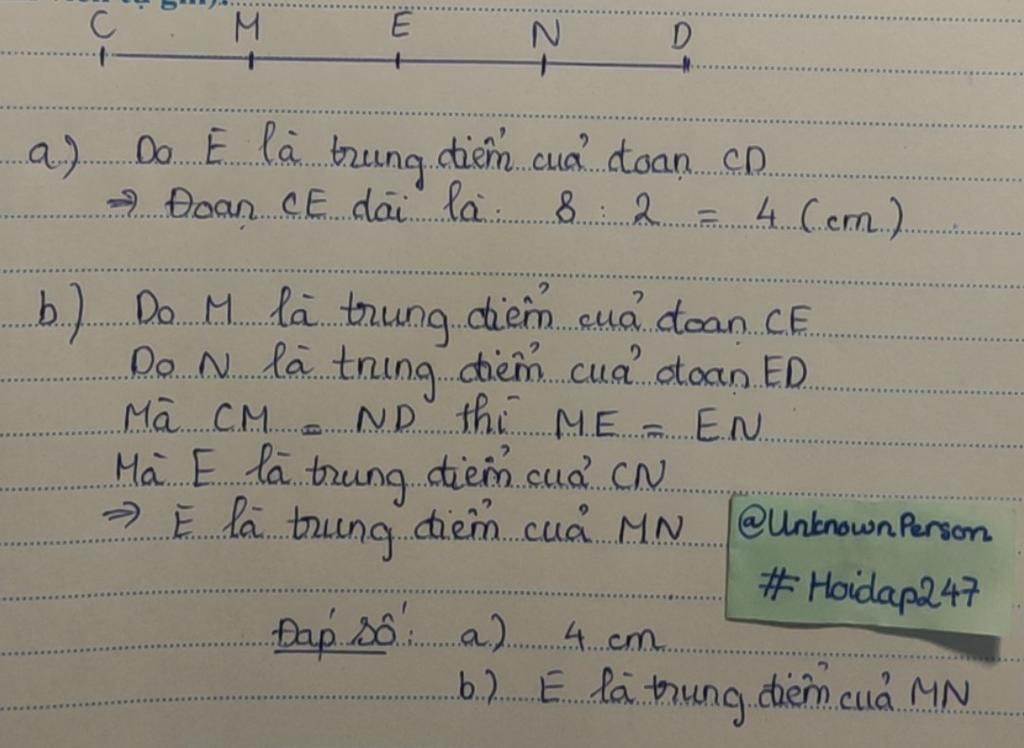 C M E N D
a) Do E là trung điểm cuả đoạn CD
⇒ Đoạn CE dài là: 8 : 2 = 4 (cm)
b) Do M là trung điểm cuả đoạn CE
Do N là trung điểm cuả đoạn ED
Mà CM = ND thì ME = EN
Mà E là trung điểm cuả CN
⇒ E là trung điểm cuả MN
@UnknownPerson
#Hoidap247
Đáp số: a) 4 cm
b) E là trung điểm cuả MN